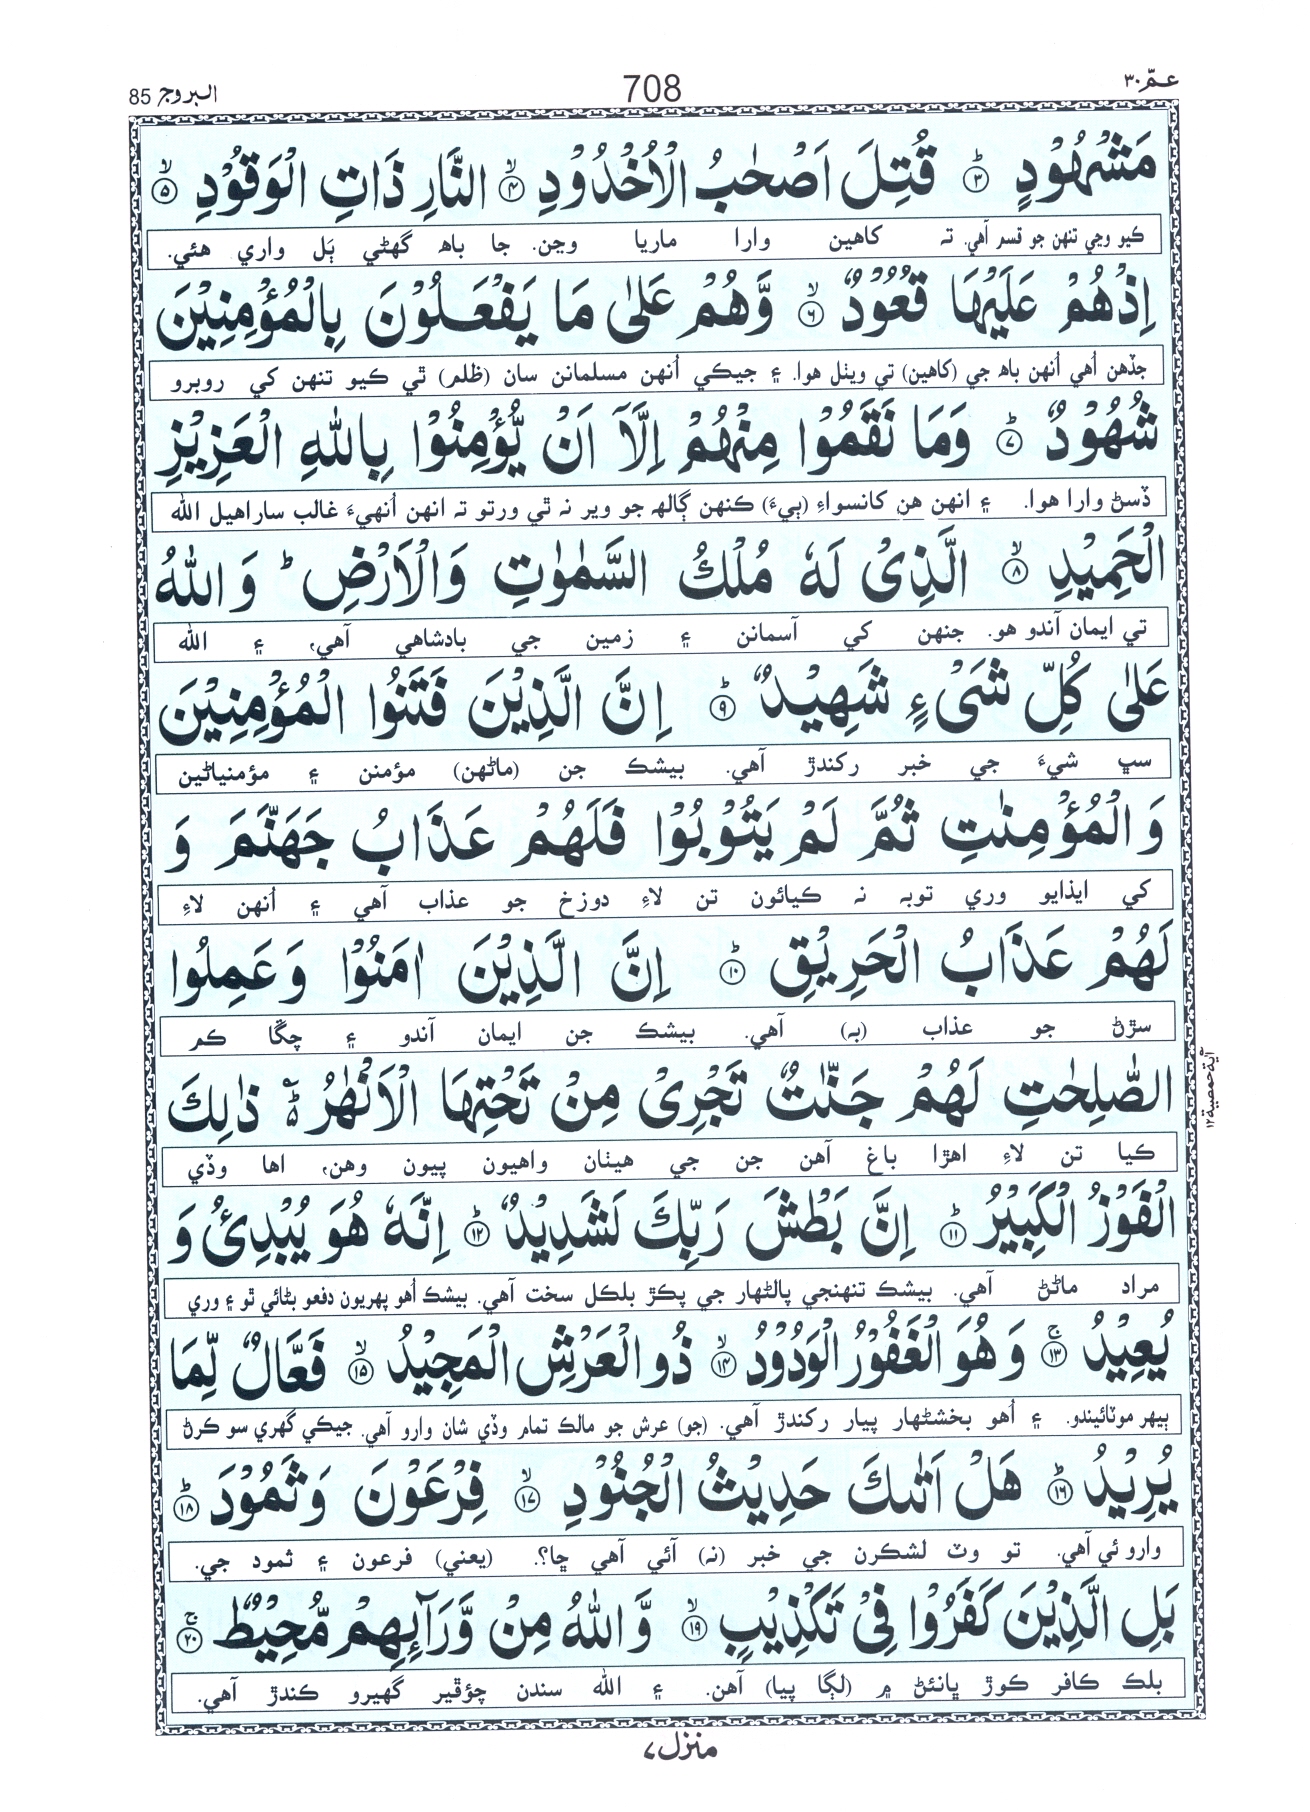 عمّ ٣٠
708
البروج 85
مَشْهُوْدٍ ؕ﴿۳﴾ قُتِلَ اَصْحٰبُ الْاُخْدُوْدِ ۙ﴿۴﴾ النَّارِ ذَاتِ الْوَقُوْدِ ۙ﴿۵﴾
ڪيو وڃي تنهن جو قسم آهي. تہ کاهين وارا ماريا وڃن. جا باھ گھڻي ٻَل واري هئي.
اِذْهُمْ عَلَيْهَا قُعُوْدٌ ۙ﴿۶﴾ وَّهُمْ عَلٰى مَا يَفْعَلُوْنَ بِالْمُؤْمِنِيْنَ
جڏهن اُهي اُنهن باھ جي (کاهين) تي ويٺل هوا. ۽ جيڪي اُنهن مسلمانن سان (ظلم) ٿي ڪيو تنهن کي روبرو
شُهُوْدٌ ؕ﴿۷﴾ وَمَا نَقَمُوْا مِنْهُمْ اِلَّاۤ اَنْ يُّؤْمِنُوْا بِاللّٰهِ الْعَزِيْزِ
ڏسڻ وارا هوا. ۽ انهن هن کانسواءِ (ٻيءَ) ڪنهن ڳالهہ جو وير نہ ٿي ورتو تہ انهن اُنهيءَ غالب ساراهيل الله
الْحَمِيْدِ ۙ﴿۸﴾ الَّذِىْ لَهٗ مُلْكُ السَّمٰوٰتِ وَالْاَرْضِ ؕ وَاللّٰهُ
تي ايمان آندو هو. جنهن کي آسمانن ۽ زمين جي بادشاهي آهي، ۽ الله
عَلٰى كُلِّ شَىْءٍ شَهِيْدٌ ؕ﴿۹﴾ اِنَّ الَّذِيْنَ فَتَنُوا الْمُؤْمِنِيْنَ
سڀ شيءَ جي خبر رکندڙ آهي. بيشڪ جن (ماڻهن) مؤمنن ۽ مؤمنياڻين
وَالْمُؤْمِنٰتِ ثُمَّ لَمْ يَتُوْبُوْا فَلَهُمْ عَذَابُ جَهَنَّمَ وَ
کي ايذايو وري توبہ نہ ڪيائون تن لاءِ دوزخ جو عذاب آهي ۽ اُنهن لاءِ
لَهُمْ عَذَابُ الْحَرِيْقِ ؕ﴿۱۰﴾ اِنَّ الَّذِيْنَ اٰمَنُوْا وَعَمِلُوا
سڙڻ جو عذاب (بہ) آهي. بيشڪ جن ايمان آندو ۽ چڱا ڪم
الصّٰلِحٰتِ لَهُمْ جَنّٰتٌ تَجْرِىْ مِنْ تَحْتِهَا الْاَنْهٰرُ ؕ ذٰلِكَ
ڪيا تن لاءِ اهڙا باغ آهن جن جي هيٺان واهيون پيون وهن، اها وڏي
الْفَوْزُ الْكَبِيْرُ ؕ﴿۱۱﴾ اِنَّ بَطْشَ رَبِّكَ لَشَدِيْدٌ ؕ﴿۱۲﴾ اِنَّهٗ هُوَ يُبْدِئُ وَ
مراد ماڻڻ آهي. بيشڪ تنهنجي پالڻهار جي پڪڙ بلڪل سخت آهي. بيشڪ اُهو پهريون دفعو بڻائي ٿو ۽ وري
يُعِيْدُ ۚ﴿۱۳﴾ وَهُوَ الْغَفُوْرُ الْوَدُوْدُ ۙ﴿۱۴﴾ ذُو الْعَرْشِ الْمَجِيْدُ ۙ﴿۱۵﴾ فَعَّالٌ لِّمَا
ٻيهر موٽائيندو. ۽ اُهو بخشڻهار پيار رکندڙ آهي. (جو) عرش جو مالڪ تمام وڏي شان وارو آهي. جيڪي گھري سو ڪرڻ
يُرِيْدُ ؕ﴿۱۶﴾ هَلْ اَتٰىكَ حَدِيْثُ الْجُنُوْدِ ۙ﴿۱۷﴾ فِرْعَوْنَ وَثَمُوْدَ ؕ﴿۱۸﴾
وارو ئي آهي. تو وٽ لشڪرن جي خبر (نہ) آئي آهي ڇا؟. (يعني) فرعون ۽ ثمود جي.
بَلِ الَّذِيْنَ كَفَرُوْا فِىْ تَكْذِيْبٍ ۙ﴿۱۹﴾ وَّاللّٰهُ مِنْ وَّرَآئِهِمْ مُّحِيْطٌ ۚ﴿۲۰﴾
بلڪ ڪافر ڪوڙ ڀانئڻ ۾ (لڳا پيا) آهن. ۽ الله سندن چؤڦير گھيرو ڪندڙ آهي.
منزل ٧